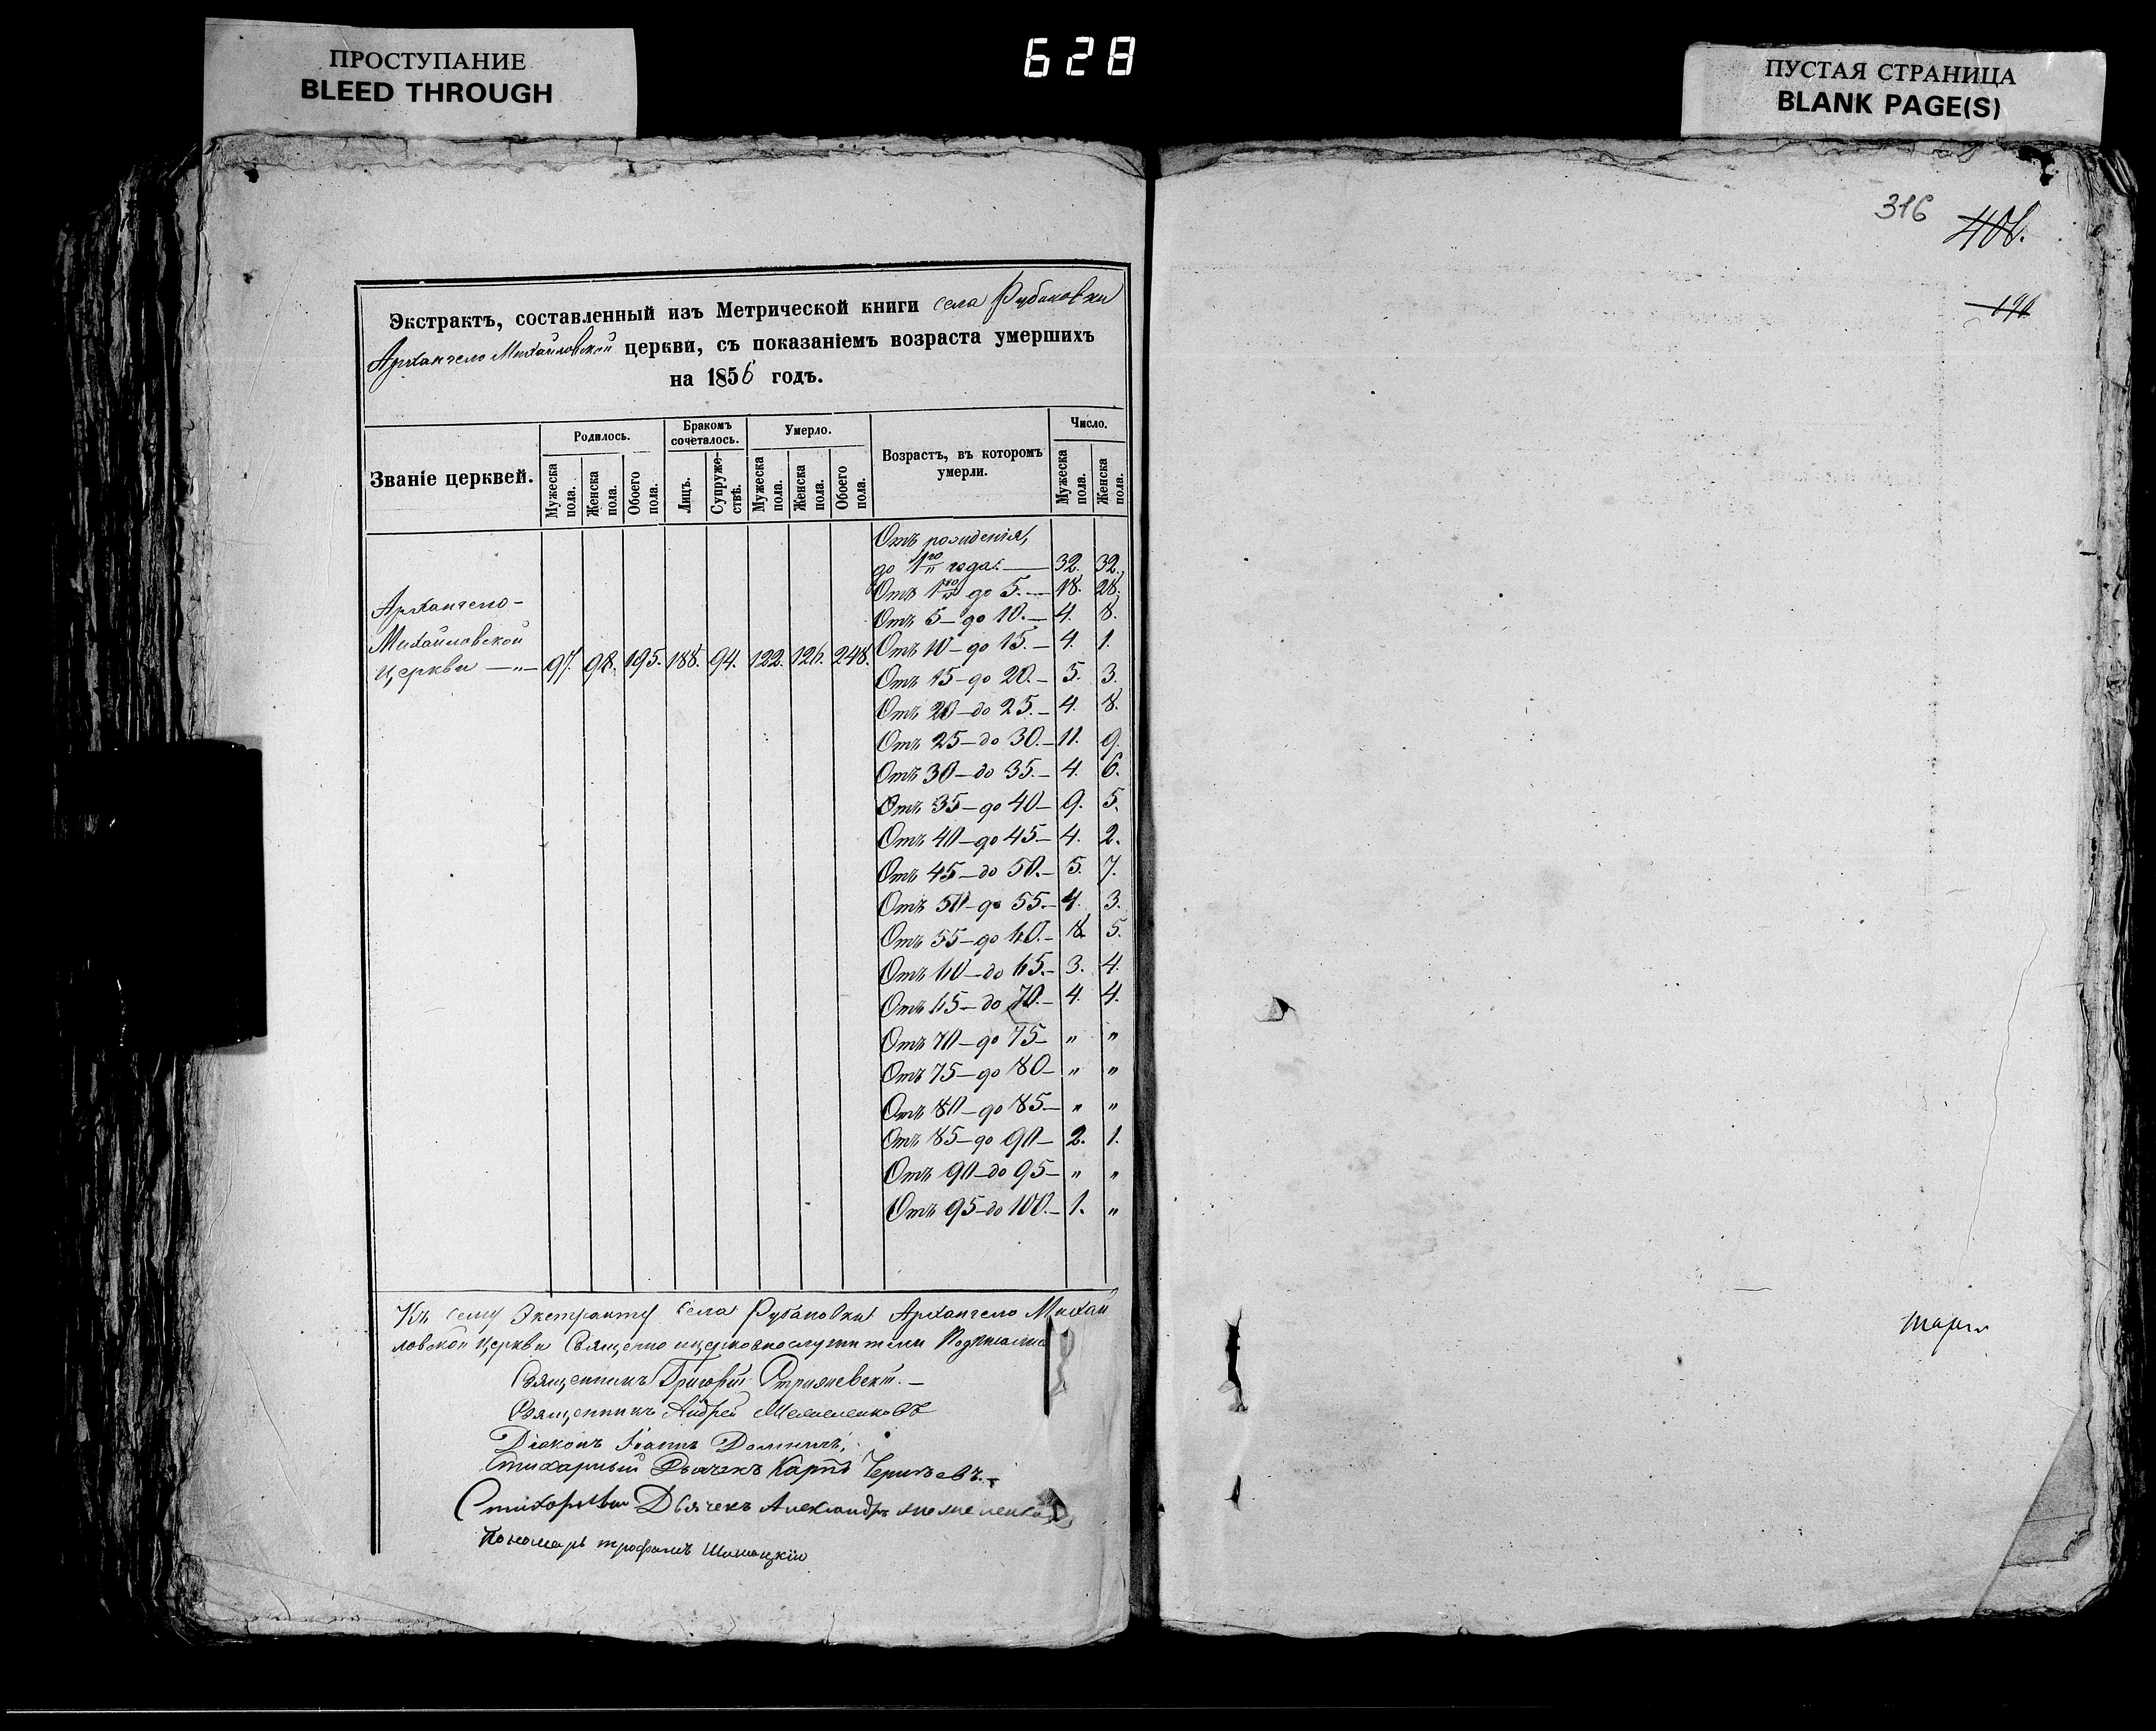 ПРОСТУПАНИЕ
BLEED THROUGH
628
ПУСТАЯ СТРАНИЦА
BLANK PAGE(S)
316 408.
196
Экстрактъ, составленный изъ Метрической книги села Рубановки
Архангело Михайловской церкви, съ показаніемъ возраста умершихъ
на 1856 годъ.
Званіе церквей.
Родилось.
Мужеска пола.
Женска пола.
Обоего пола.
Бракомъ сочеталось.
Лицъ.
Супруже-ствъ.
Умерло.
Мужеска пола.
Женска пола.
Обоего пола.
Возрастъ, въ которомъ умерли.
Число.
Мужеска пола.
Женска пола.
Архангело-
Михайловской
церкви —„— 97. 98. 195. 188. 94. 122. 126. 248.
Отъ рожденія,
до 1го года. — 32. 32.
Отъ 1го до 5. — 18. 28.
Отъ 5 — до 10. — 4. 8.
Отъ 10 — до 15. — 4. 1.
Отъ 15 — до 20. — 5. 3.
Отъ 20 — до 25. — 4. 8.
Отъ 25 — до 30. — 11. 9.
Отъ 30 — до 35. — 4. 6.
Отъ 35 — до 40 — 9. 5.
Отъ 40 — до 45 — 4. 2.
Отъ 45 — до 50. — 5. 7.
Отъ 50 — до 55. — 4. 3.
Отъ 55 — до 60. — 8. 5.
Отъ 60 — до 65. — 3. 4.
Отъ 65 — до 70. — 4. 4.
Отъ 70 — до 75 — „ „
Отъ 75 — до 80 — „ „
Отъ 80 — до 85 — „ „
Отъ 85 — до 90 — 2. 1.
Отъ 90 — до 95 — „ „
Отъ 95 — до 100. — 1. „
Къ сему Экстракту села Рубановки Архангело Михай
ловской церкви Священно церковнослужители Подписались
Священникъ Григорій
Священникъ Андрей
Діаконъ Іоаннъ
Стихарный Дьячекъ Карпъ
Стихарный Дьячекъ Александръ
Пономарь трофимъ